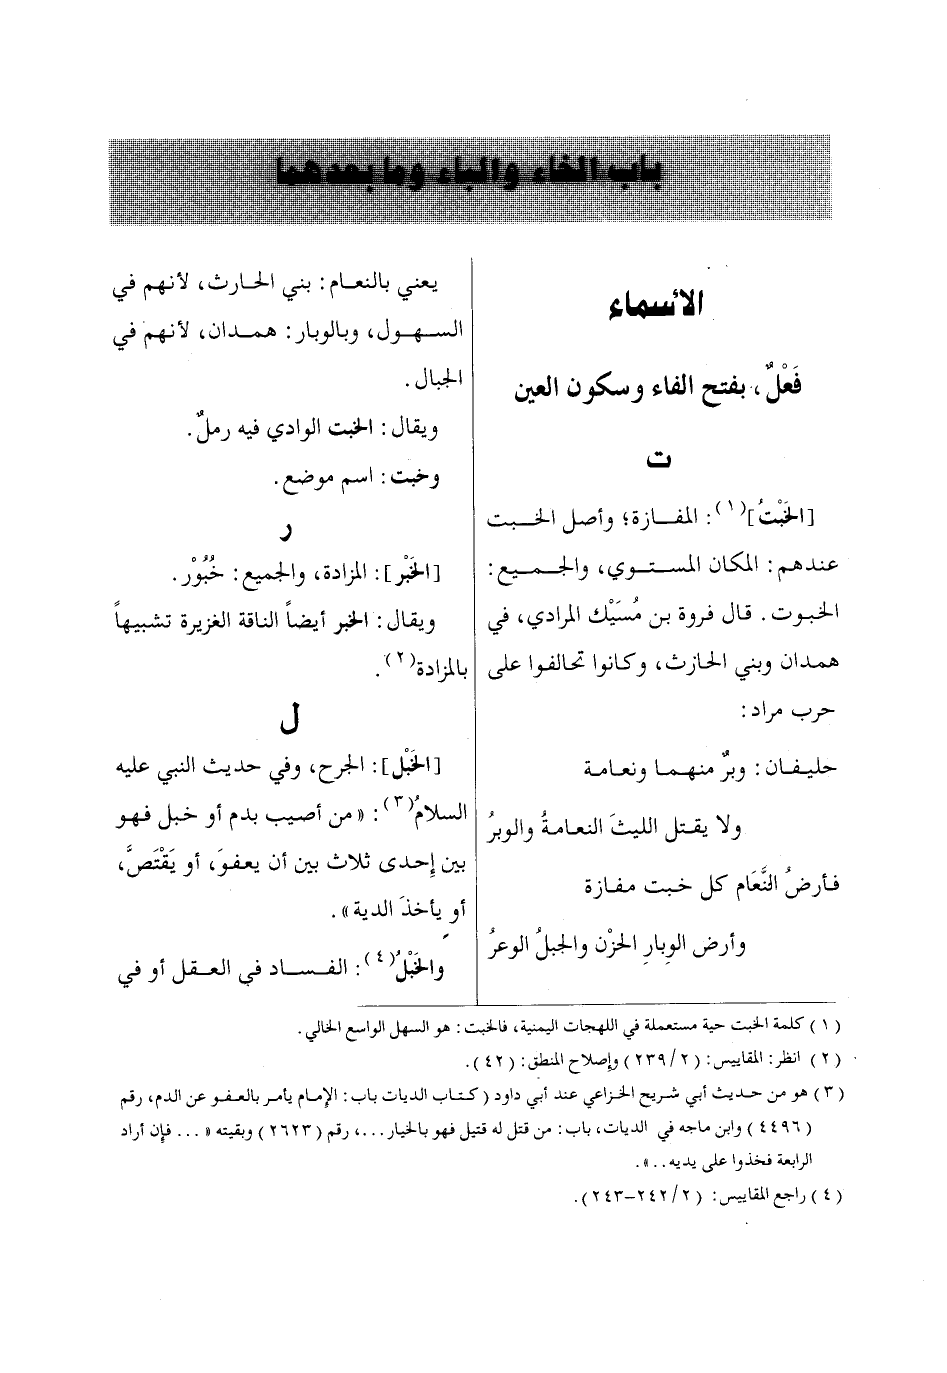 باب الخاء والباء وما بعدهما
الأسماء
فَعْلٌ، بفتح الفاء وسكون العين
ت
[الخَبْتُ](١): المفـازة؛ وأصل الخـبت
عندهم: المكان المستـوي، والجـميع:
الخبوت. قال فروة بن مُسَيْك المرادي، في
همدان وبني الحارث، وكانوا تحالفوا على
حرب مراد:
حليفـان: وبرٌ منهمـا ونعامـة
ولا يقـتل الليثَ النعامةُ والوبرُ
فـأرضُ النَّعَام كل خبت مفـازة
وأرض الوِبارِ الحزْن والجبلُ الوعرُ
يعني بالنعـام: بني الحـارث، لأنهم في
السـهـول، وبالوبار: همـدان، لأنهم في
الجبال.
ويقال: الخبت الوادي فيه رملٌ.
وخبت: اسم موضع.
ر
[الخَبْر]: المزادة، والجميع: خُبُوْر.
ويقال: الخبر أيضاً الناقة الغزيرة تشبيهاً
بالمزادة(٢).
ل
[الخَبْل]: الجرح، وفي حديث النبي عليه
السلامُ(٣): «من أصيب بدم أو خبل فـهو
بين إحدى ثلاث بين أن يعفـوَ، أو يَقْتَصَّ،
أو يأخذَ الدية».
والخَبْلُ(٤): الفـسـاد في العـقل أو في
(١) كلمة الخبت حية مستعملة في اللهجات اليمنية، فالخبت: هو السهل الواسع الخالي.
(٢) انظر: المقاييس: (٢/٢٣٩) وإصلاح المنطق: (٤٢).
(٣) هو من حديث أبي شريح الخزاعي عند أبي داود (كتاب الديات باب: الإمام يأمر بالعفو عن الدم، رقم
(٤٤٩٦) وابن ماجه في الديات، باب: من قتل له قتيل فهو بالخيار...، رقم (٢٦٢٣) وبقيته «... فإن أراد
الرابعة فخذوا على يديه..».
(٤) راجع المقاييس: (٢/٢٤٢-٢٤٣).